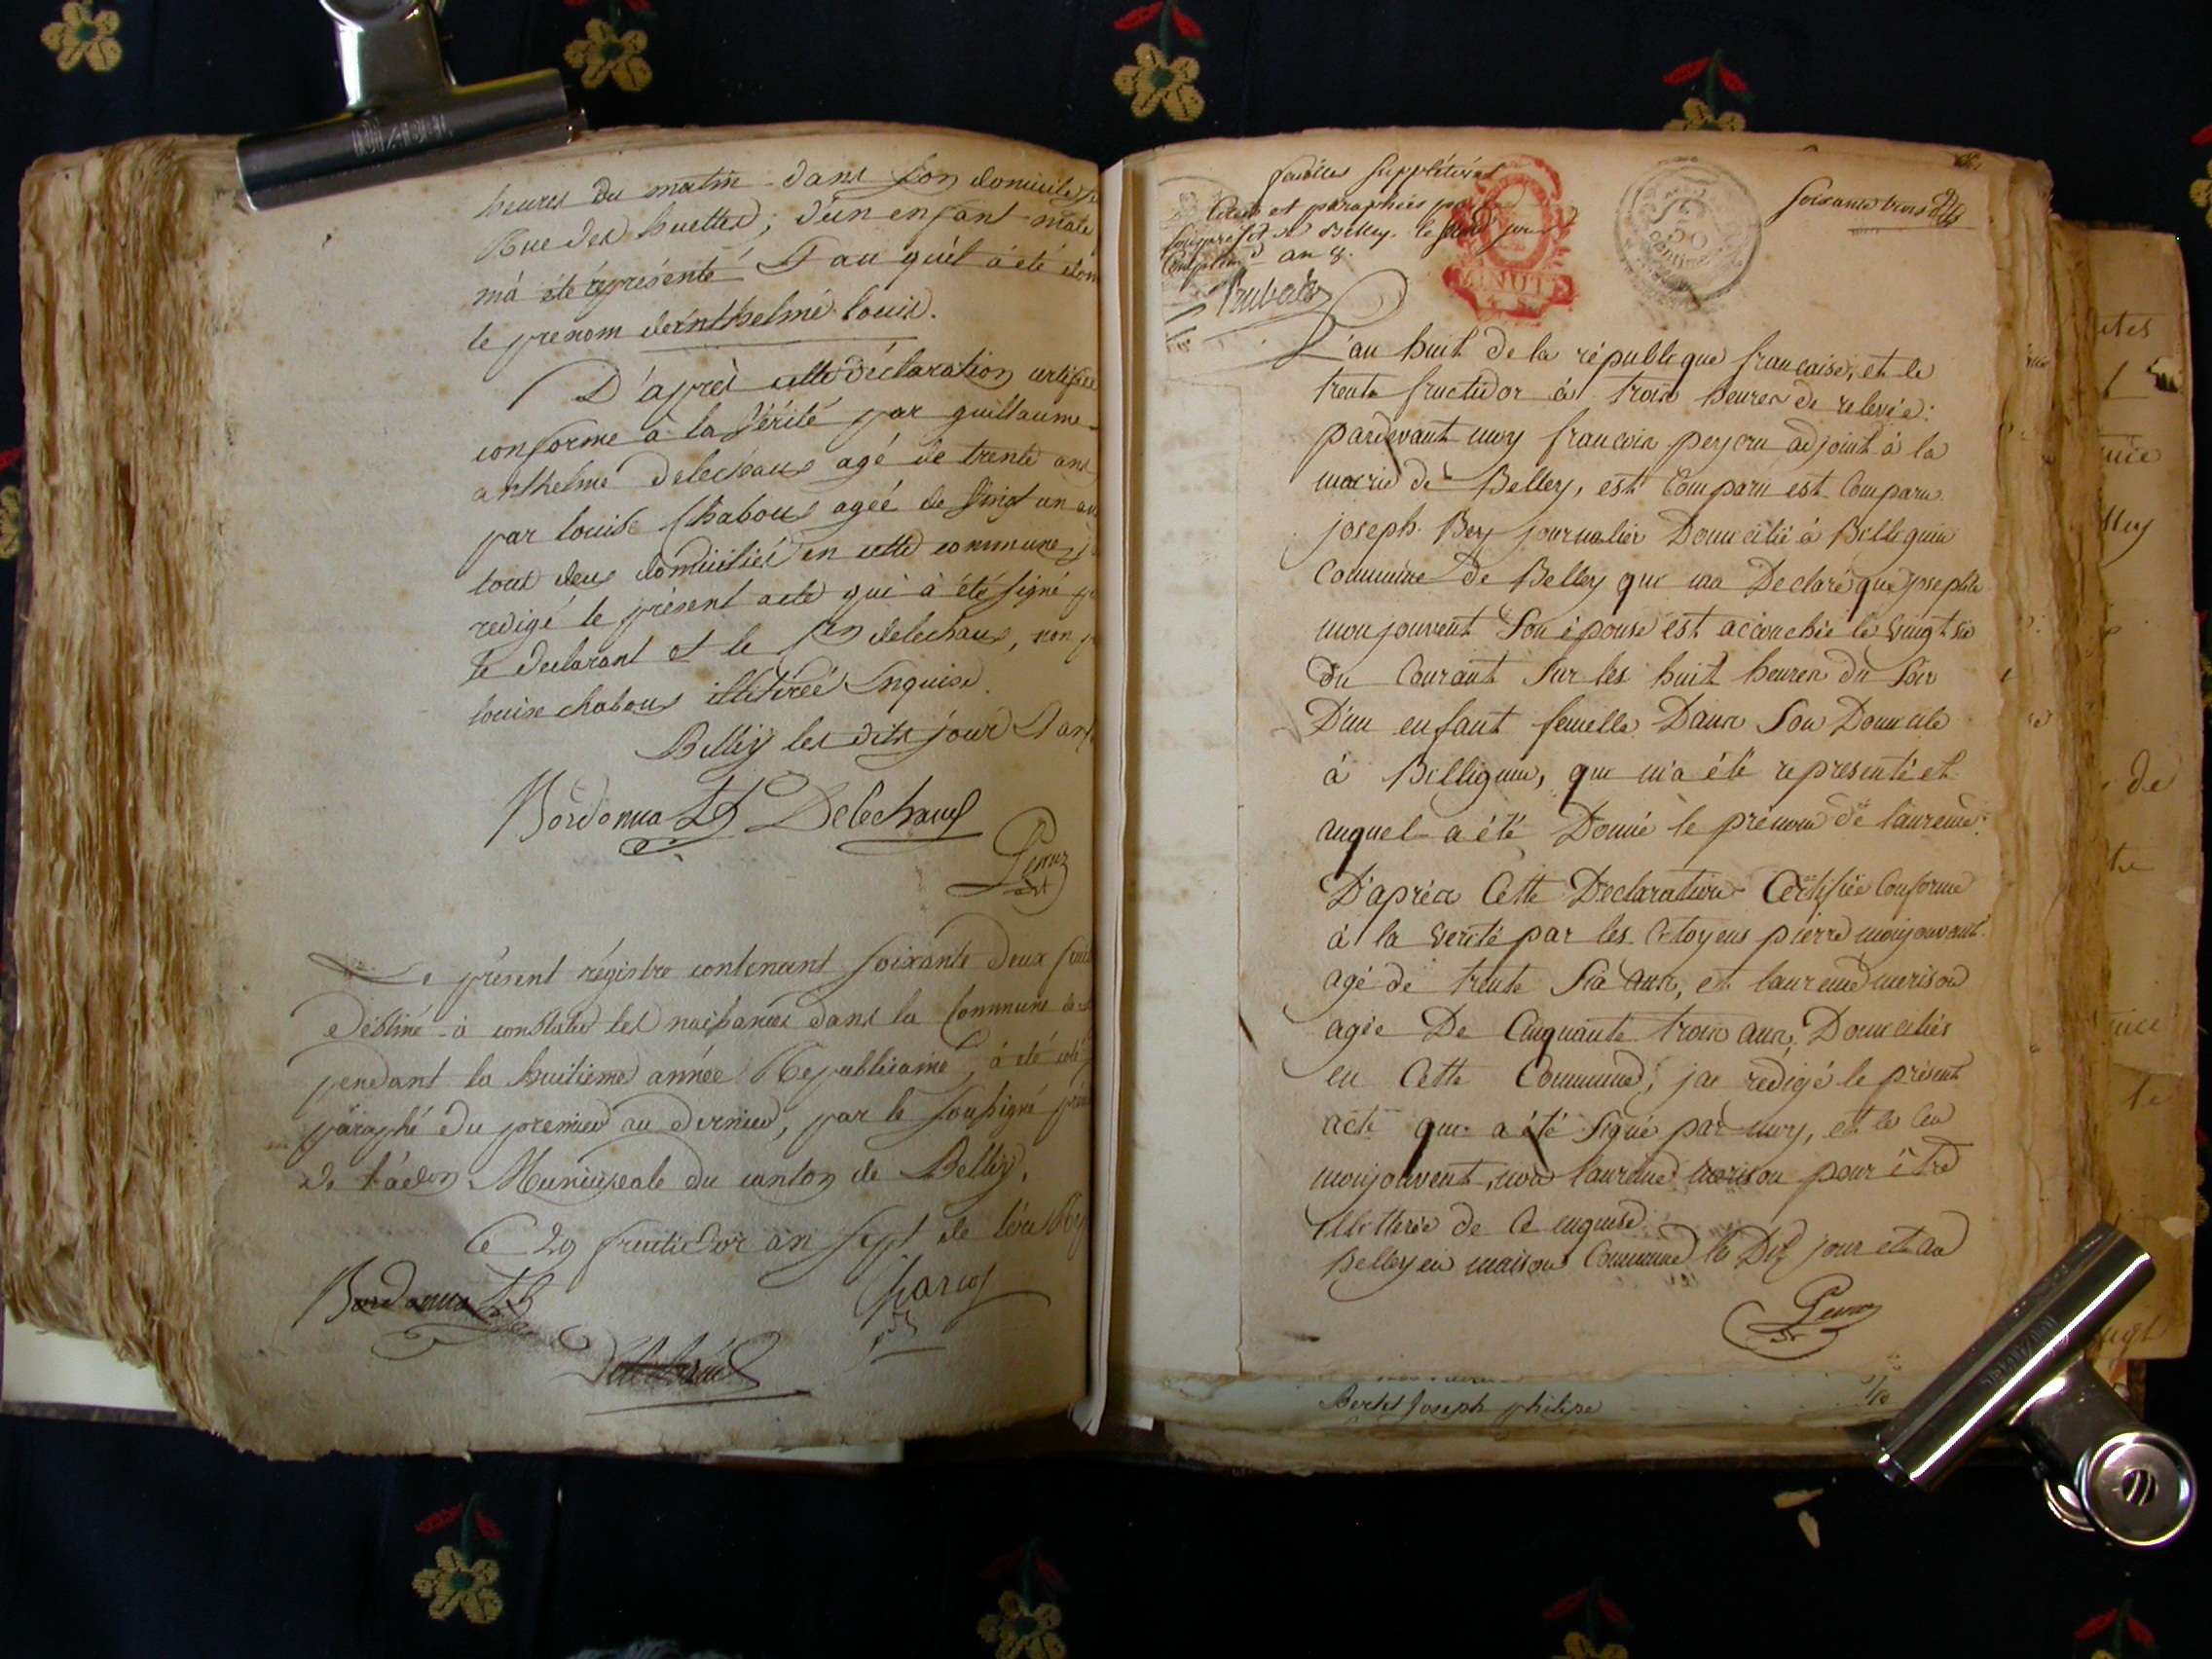 heures du matin dans son domicile
Rue des huettes, d'un enfant mâle
m'à été représenté & au quel à été don
le prenom de anthelme louis.
D'après cette déclaration certifiée
conforme à la vérité par guillaume
anthelme Delechaux agé de trente ans
par louise Chaboux agéé de vingt un an
tous deux domiciliés en cette commune
redigé le present acte qui à été signé
le declarant et le cen delechaux, non
louise chaboux illitérée Enquise.
Belley les dits jour & an
Bordonna Delechaux
Le présent régistre contenant soixante deux feuil
Destiné à constater les naissances dans la Commune de
pendant la huitieme année Republicaine, à été coté
paraphé du premier au dernier, par le soussigné
de l'adon Municipale du canton de Belley.
Ce 29 fructidor an sept de l'ère
Bordonna
Delechaux
feuilles supplétoires
Cotées et paraphées par
souprefet de Belley. le jour
Complem. an 8.
MINUTE
50
centimes
soixante trois
L'an huit de la république francaise, et le
trente fructidor à trois heures de relevée:
pardevant moy francois adjoint à la
mairie de Belley, est Comparu est Comparu
joseph Bey journalier Domicilié à Billignin
Commune de Belley qui ma Declaré que josephte
monjouvent Son épouse est accouchée le vingt six
du Courant sur les huit heures du Soir
D'un enfant femelle Dans Son Domicile
à Billignin, qui m'a été representé et
auquel a été Donné le prénom de laurence.
D'après Cette Declaration Certifiée Conforme
à la verité par les Citoyens pierre monjouvent
agé de trente Six ans, et laurence merison
agée De Cinquante trois ans, Domiciliés
en Cette Commune, jai redigé le présent
acte qui a été signé par moy, et le Cen
monjouvent, non laurence merison pour être
illettrée de Ce enquise.
Belley en maison Commune le Dit jour et an
Bertet Joseph philipe